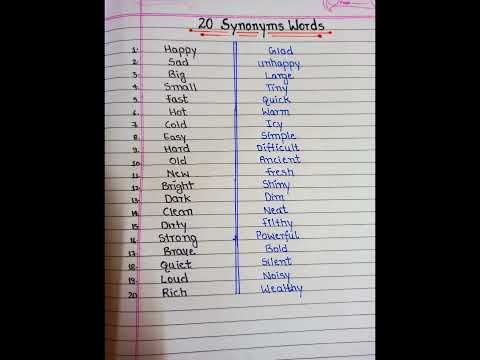 20 Synonyms Words
1. Happy Glad
2. Sad unhappy
3. Big Large
4. Small Tiny
5. fast Quick
6. Hot Warm
7. Cold Icy
8. Easy Simple
9. Hard Difficult
10. Old Ancient
11. New fresh
12. Bright Shiny
13. Dark Dim
14. Clean Neat
15. Dirty filthy
16. Strong Powerful
17. Brave Bold
18. Quiet Silent
19. Loud Noisy
20. Rich Wealthy